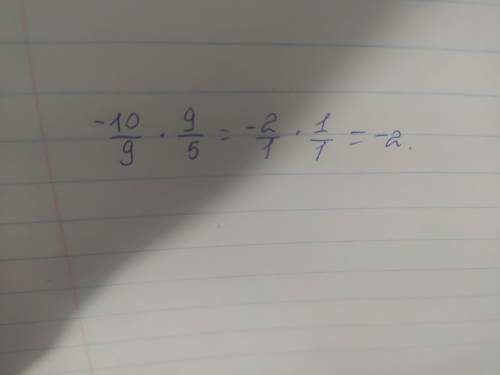 -10/9 · 9/5 = -2/1 · 1/1 = -2.